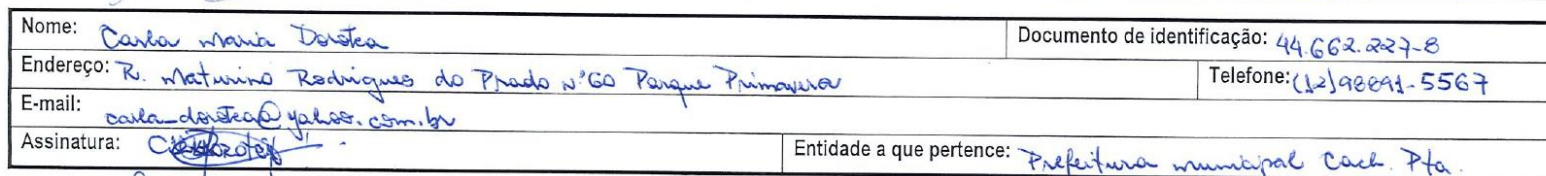 Nome: Carla Maria Dorotea Documento de identificação: 44.662.227-8
Endereço: R. Maturino Rodrigues do Prado nº 60 Parque Primavera Telefone: (12)98891-5567
E-mail: carla_dorotea@yahoo.com.br
Assinatura: Entidade a que pertence: Prefeitura municipal Cach. Pta.